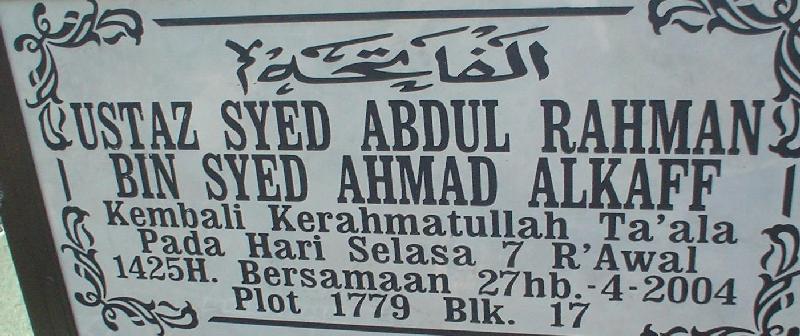 الفاتحة
USTAZ SYED ABDUL RAHMAN
BIN SYED AHMAD ALKAFF
Kembali Kerahmatullah Ta'ala
Pada Hari Selasa 7 R'Awal
1425H. Bersamaan 27hb.-4-2004
Plot 1779 Blk. 17